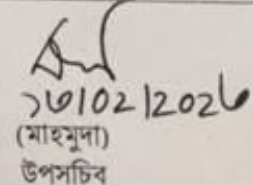 ১৬/০২/২০২৬
(মাহমুদা)
উপসচিব